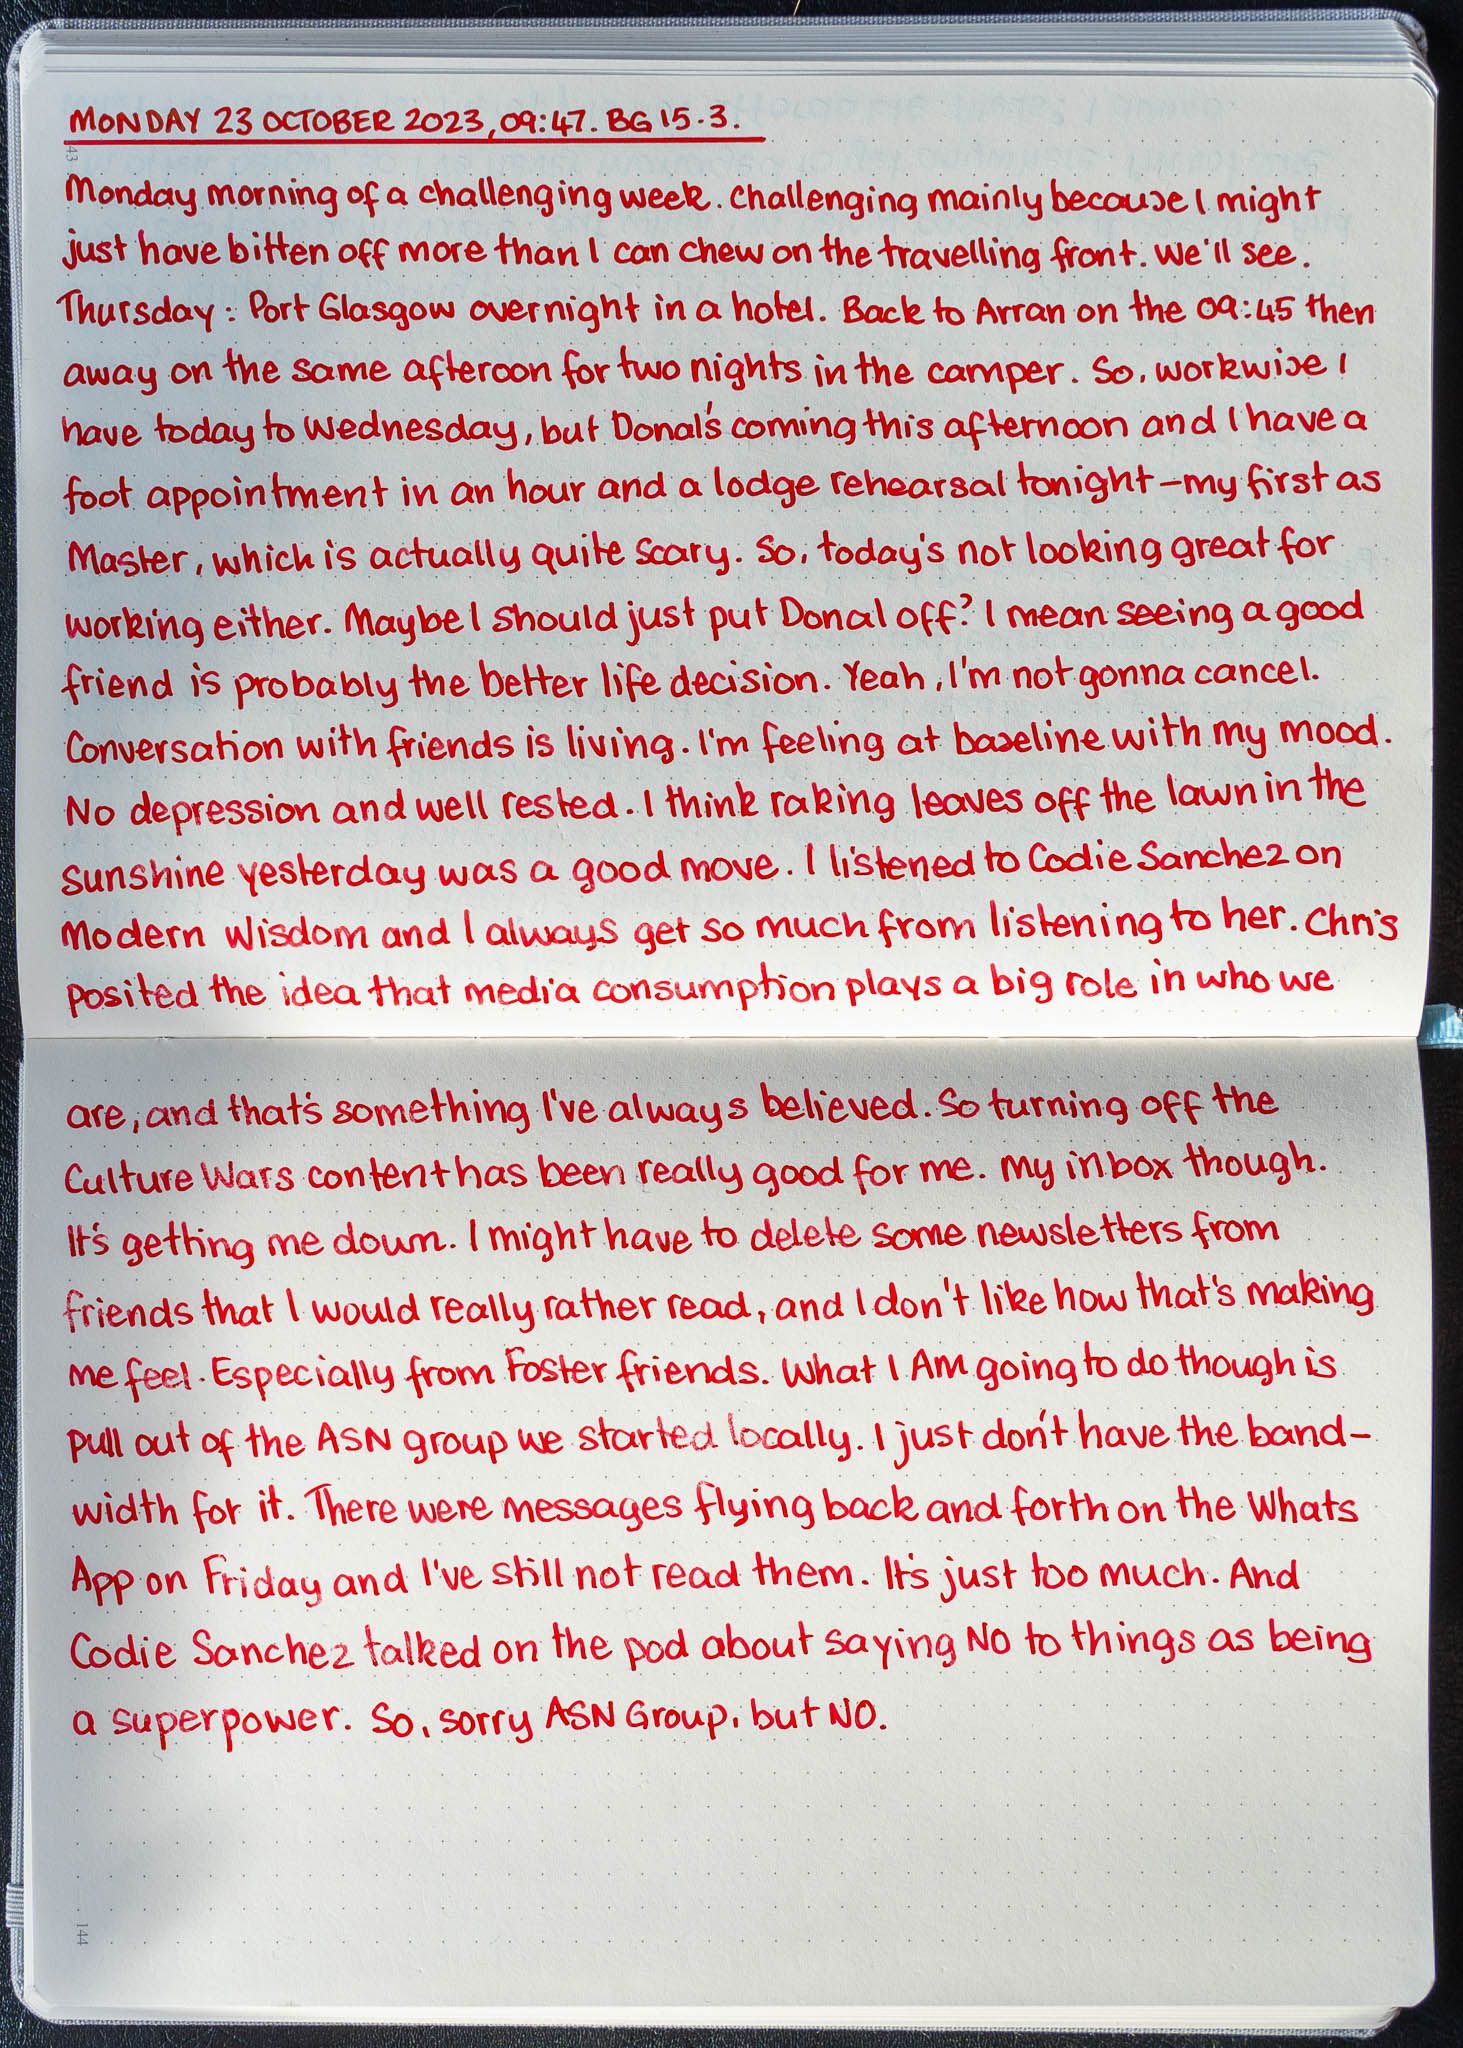 MONDAY 23 OCTOBER 2023, 09:47. BG 15.3.
43
Monday morning of a challenging week. Challenging mainly because I might
just have bitten off more than I can chew on the travelling front. We'll see.
Thursday: Port Glasgow overnight in a hotel. Back to Arran on the 09:45 then
away on the same afteroon for two nights in the camper. So, workwise I
have today to Wednesday, but Donal's coming this afternoon and I have a
foot appointment in an hour and a lodge rehearsal tonight – my first as
Master, which is actually quite scary. So, today's not looking great for
working either. Maybe I should just put Donal off? I mean seeing a good
friend is probably the better life decision. Yeah, I'm not gonna cancel.
Conversation with friends is living. I'm feeling at baseline with my mood.
No depression and well rested. I think raking leaves off the lawn in the
sunshine yesterday was a good move. I listened to Codie Sanchez on
Modern Wisdom and I always get so much from listening to her. Chris
posited the idea that media consumption plays a big role in who we
are, and that's something I've always believed. So turning off the
Culture Wars content has been really good for me. My inbox though.
It's getting me down. I might have to delete some newsletters from
friends that I would really rather read, and I don't like how that's making
me feel. Especially from Foster friends. What I AM going to do though is
pull out of the ASN group we started locally. I just don't have the band-
width for it. There were messages flying back and forth on the Whats
App on Friday and I've still not read them. It's just too much. And
Codie Sanchez talked on the pod about saying NO to things as being
a superpower. So, sorry ASN Group, but NO.
144